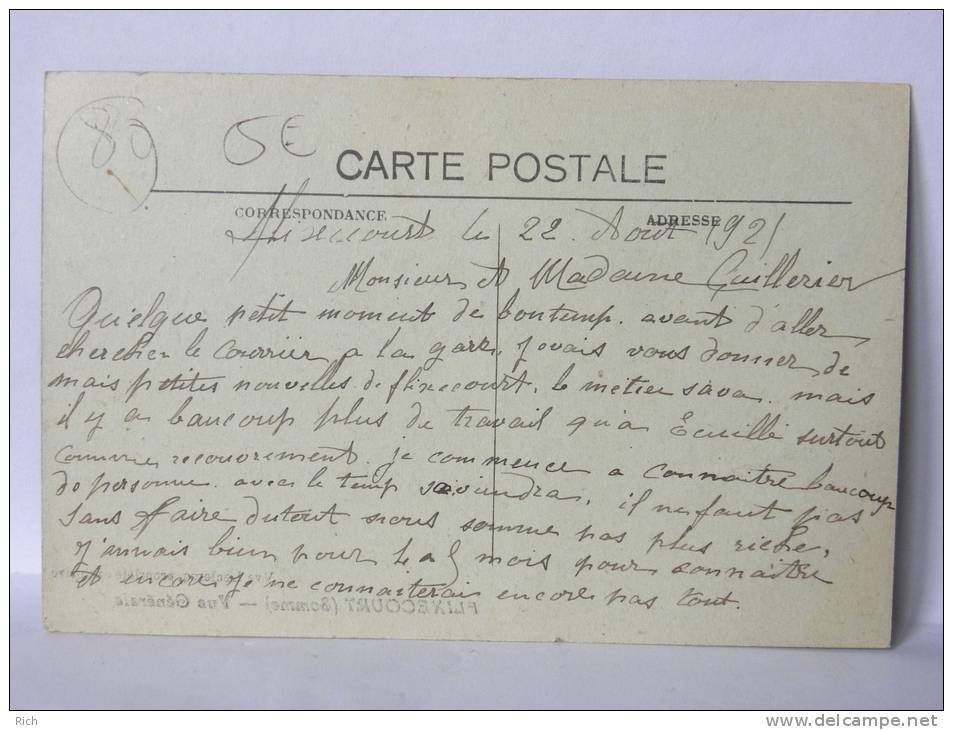 80
5E
CARTE POSTALE
CORRESPONDANCE
ADRESSE
Flixecourt le 22 Aout 1921
Monsieur et Madame Cuillerier
Quelque petit moment de bontemp. avant d'aller
chercher le courrier a la gare, je vais vous donner de
mais petites nouvelles de flixecourt, le métier sava. mais
il y a beaucoup plus de travail qu'a Ecuillé surtout
comme recouvrement. je commence a connaitre baucoup
de personne. avec le temp saviendra, il ne faut pas
sans faire dutout nous somme pas plus riche,
j'annais bien pour 4 a 5 mois pour connaitre
et encore je ne connaiterais encore pas tout.
FLIXECOURT (Somme) — Vue Générale
Rich
www.delcampe.net